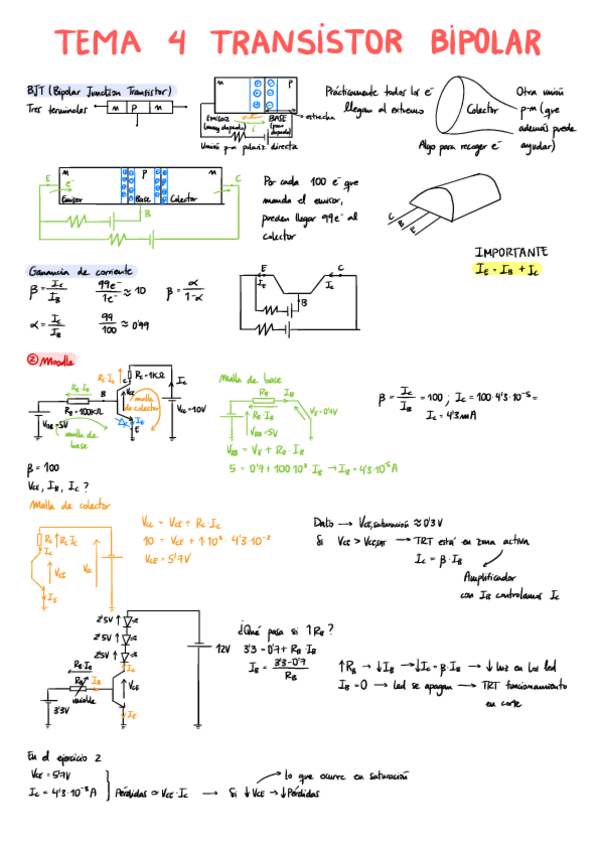 TEMA 4 TRANSISTOR BIPOLAR
BJT (Bipolar Junction Transistor)
Tres terminales
n P n
n P
EMISOR (muy dopado)
BASE (poco dopada)
estrecha
Unión p-n polariz. directa
Prácticamente todos los e⁻ llegan al extremo
Colector
Algo para recoger e⁻
Otra unión p-n (que además puede ayudar)
n P n
E e⁻ C
Emisor Base Colector
B
Por cada 100 e⁻ que
manda el emisor,
pueden llegar 99e⁻ al
colector
C B E
IMPORTANTE
I_E = I_B + I_C
Ganancia de corriente
β = I_C/I_B 99e⁻/1e⁻ ≈ 10 β = α/1-α
α = I_C/I_B 99/100 ≈ 0'99
E C
I_E I_C
B
② Moodle
R_C I_C R_C = 1KΩ I_C
R_B·I_B B C V_CE
R_B = 100KΩ malla de colector V_CC = 10V
V_BB = 5V malla de base I_E E
Malla de base
R_B I_B
R_B·I_B V_γ = 0'7V
V_BB = 5V
V_BB = V_γ + R_B·I_B
5 = 0'7 + 100·10³ I_B → I_B = 4'3·10⁻⁵ A
β = I_C/I_B = 100 ; I_C = 100·4'3·10⁻⁵ =
I_C = 4'3mA
β = 100
V_CE, I_B, I_C ?
Malla de colector
R_C R_C I_C
I_C
V_CE
I_E
V_CC = V_CE + R_C·I_C
10 = V_CE + 1·10³·4'3·10⁻³
V_CE = 5'7V
Dato → V_CE,saturación ≈ 0'3V
Si V_CE > V_CE,sat → TRT está en zona activa
I_C = β·I_B
Amplificador
con I_B controlamos I_C
2'5V
2'5V
2'5V
12V
I_C
R_B I_B
R_B I_B V_CE
variable
3'3V I_E
¿Qué pasa si ↑R_B?
3'3 = 0'7 + R_B·I_B
I_B = 3'3-0'7/R_B
↑R_B → ↓I_B → ↓I_C = β·I_B → ↓ luz en los led
I_B = 0 → led se apagan → TRT funcionamiento
en corte
En el ejercicio 2
V_CE = 5'7V
I_C = 4'3·10⁻³ A
Pérdidas ≈ V_CE·I_C → Si ↓V_CE → ↓Pérdidas
lo que ocurre en saturación